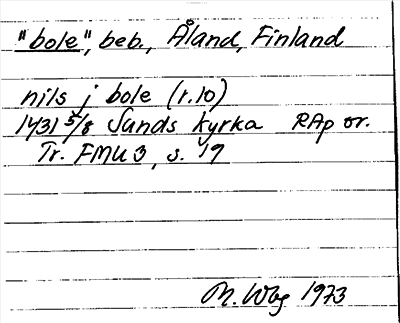 "bole", beb., Åland, Finland
nils j bole (r.10)
1431 5/8 Sunds kyrka RAp or.
Tr. FMU 3, s. 49
M. Wbg 1973